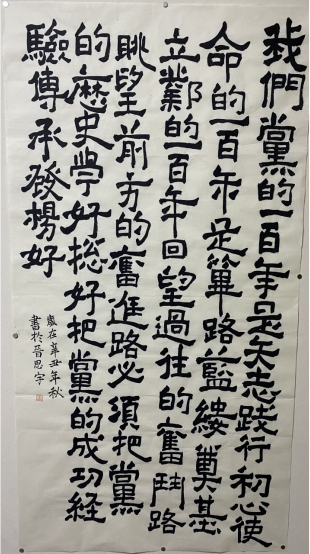 我們黨的一百年是矢志踐行初心使
命的一百年是簞路藍縷奠基
立鄴的一百年回望過往的奮鬥路
眺望前方的奮進路必須把黨
的歷史學好総好把黨的成功經
驗傳承發楊好
歲在辛丑年秋
書於晉思宇